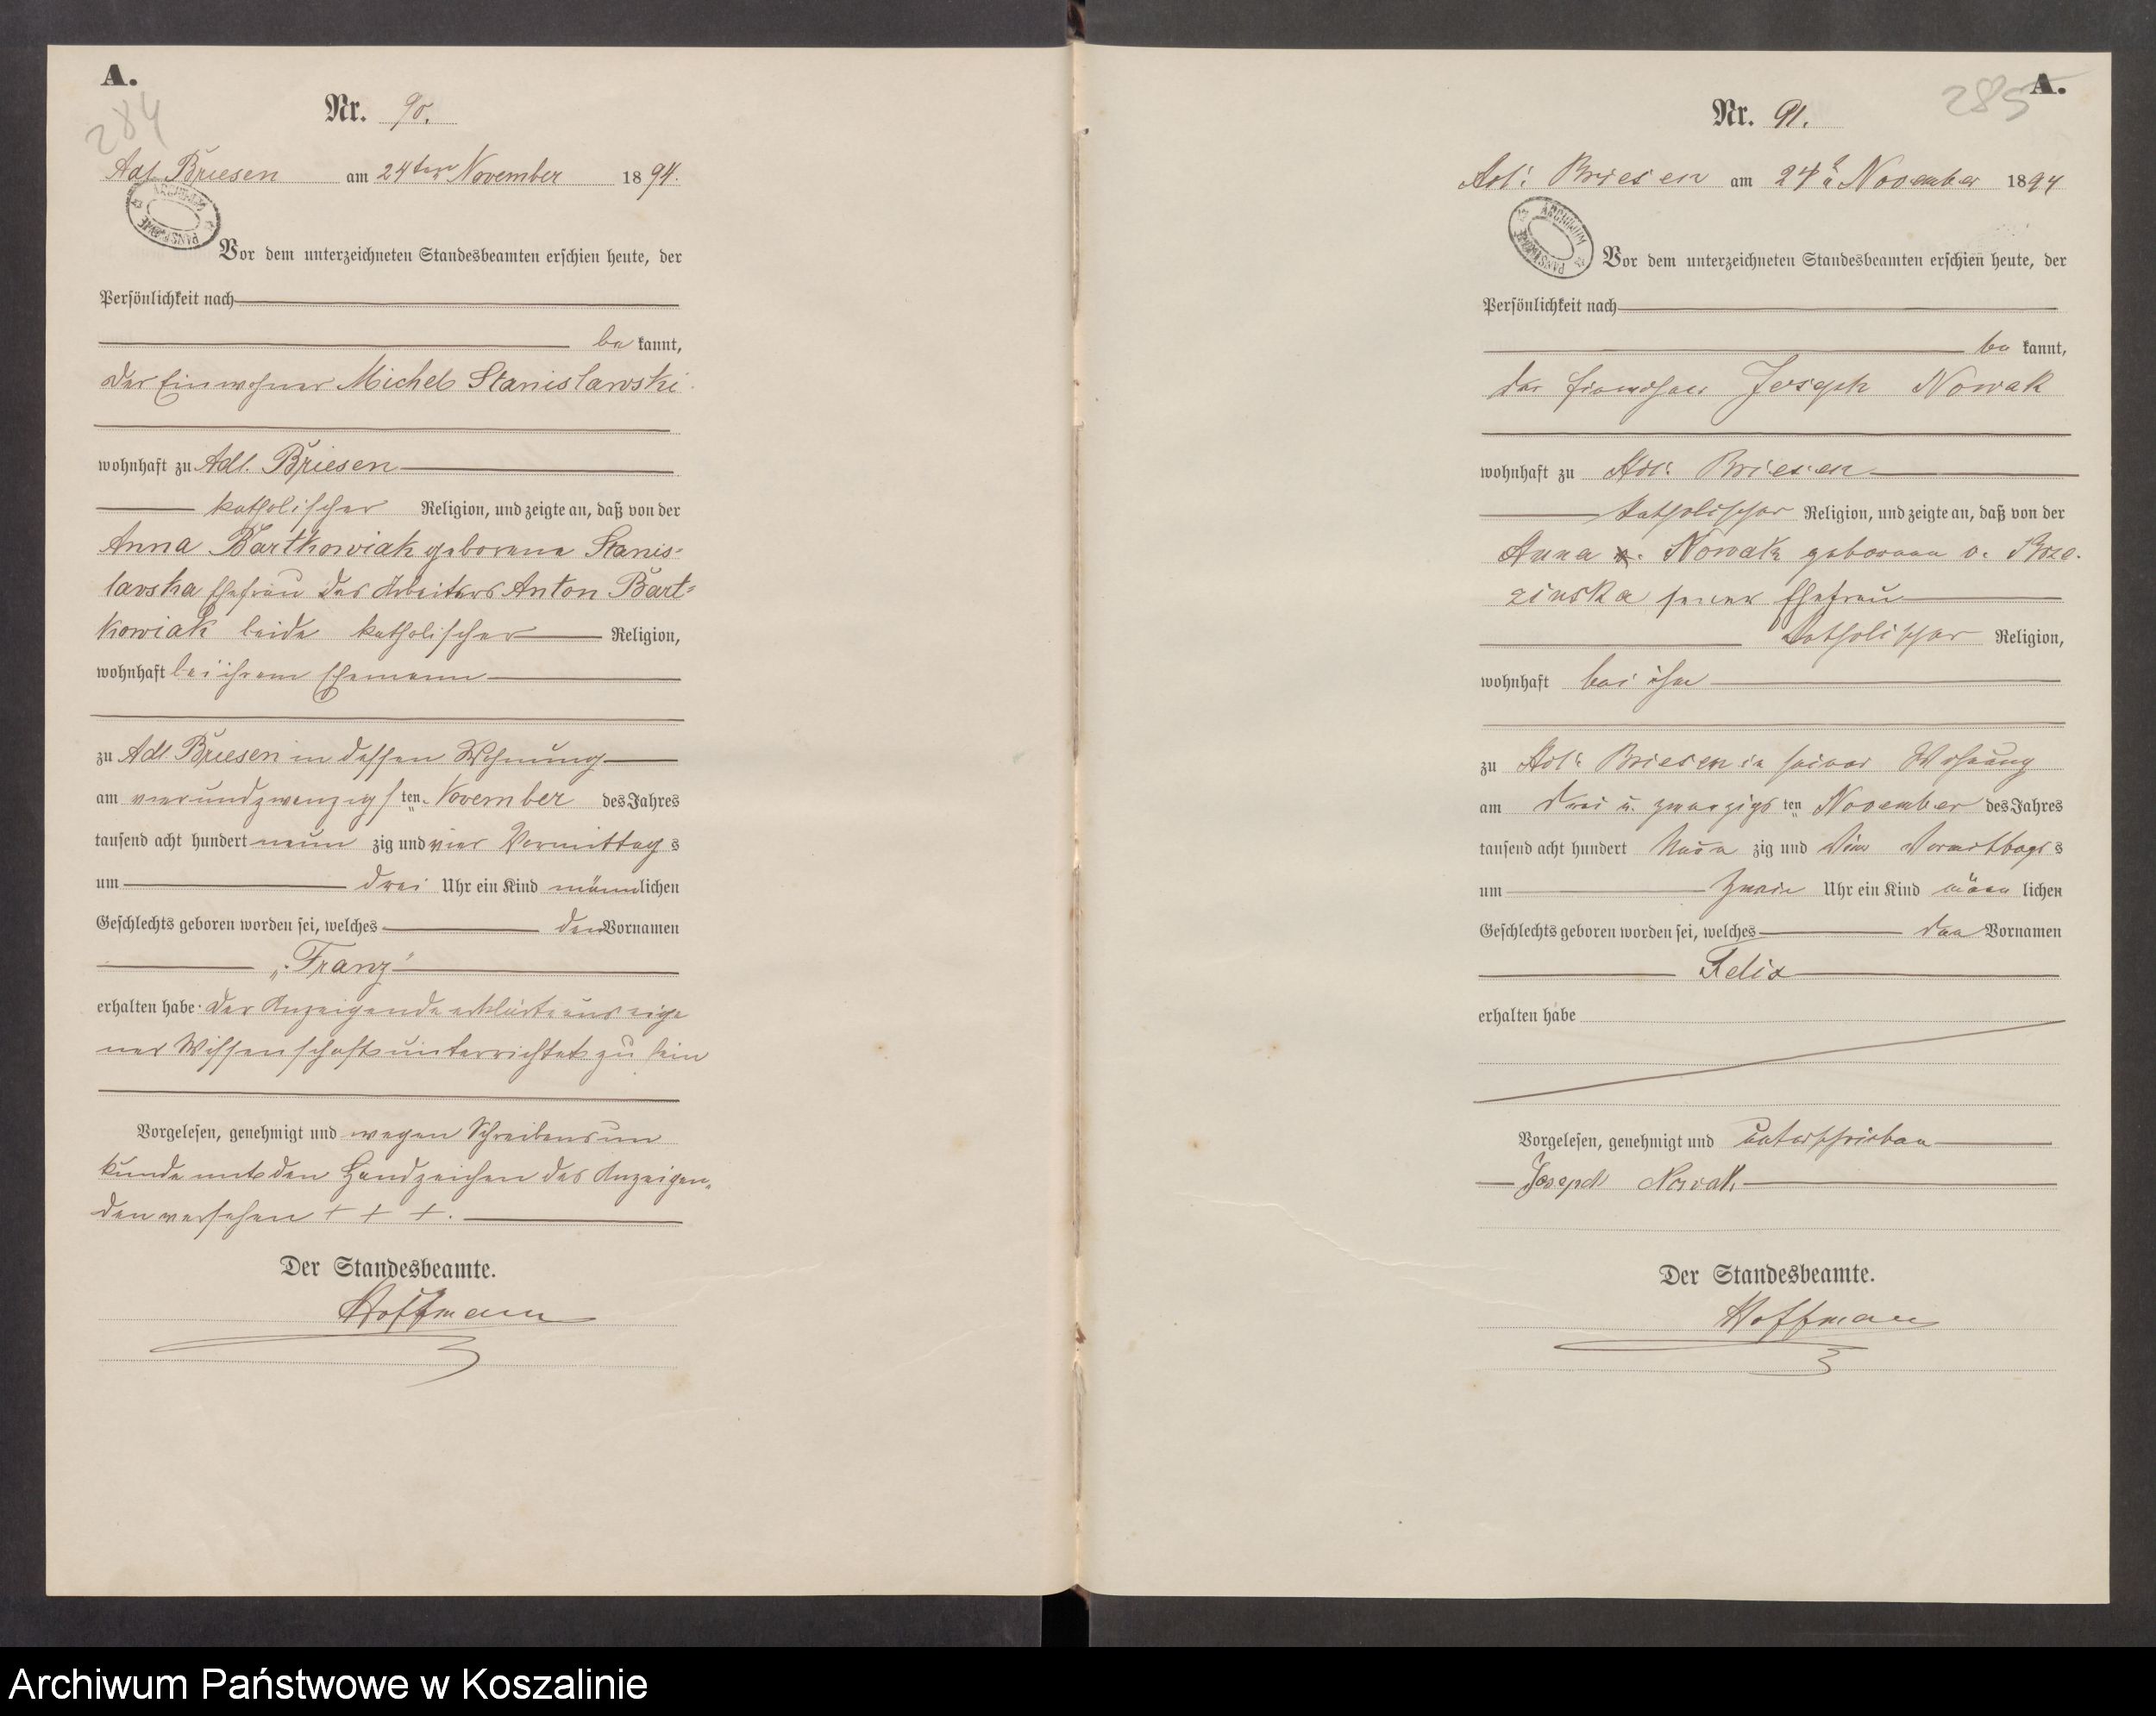 A.
284
Nr. 90.
Adl. Briesen am 24ten November 1894.
ARCHIWUM PAŃSTWOWE
Vor dem unterzeichneten Standesbeamten erschien heute, der
Persönlichkeit nach
be kannt,
der Einwohner Michel Stanislawski
wohnhaft zu Adl. Briesen
katholischer Religion, und zeigte an, daß von der
Anna Bartkowiak geborene Stanis-
lavska Ehefrau des Arbeiters Anton Bart-
kowiak beide katholischer Religion,
wohnhaft bei ihrem Ehemann
zu Adl. Briesen in dessen Wohnung
am vierundzwanzigsten November des Jahres
tausend acht hundert neun zig und vier Vormittag s
um drei Uhr ein Kind männlichen
Geschlechts geboren worden sei, welches den Vornamen
„Franz“
erhalten habe. Der Anzeigende erklärte aus eige
ner Wissenschaft unterrichtet zu sein
Vorgelesen, genehmigt und wegen Schreibensun
kunde mit den Handzeichen des Anzeigen-
den versehen + + +.
Der Standesbeamte.
Hoffmann
A.
285
Nr. 91.
Adl. Briesen am 24 November 1894
ARCHIWUM PAŃSTWOWE
Vor dem unterzeichneten Standesbeamten erschien heute, der
Persönlichkeit nach
be kannt,
der Einwohner Joseph Nowak
wohnhaft zu Adl. Briesen
katholischer Religion, und zeigte an, daß von der
Anna Nowak geborenen v.
zinska seiner Ehefrau
katholischer Religion,
wohnhaft bei ihm
zu Adl. Briesen in seiner Wohnung
am drei u. zwanzigsten November des Jahres
tausend acht hundert neun zig und vier Vormittags s
um Uhr ein Kind männ lichen
Geschlechts geboren worden sei, welches den Vornamen
Felix
erhalten habe
Vorgelesen, genehmigt und unterschrieben
Joseph Nowak
Der Standesbeamte.
Hoffmann
Archiwum Państwowe w Koszalinie